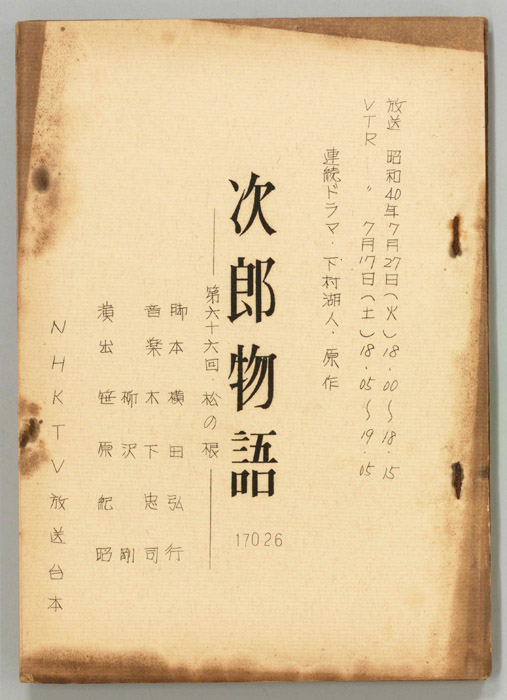 放送 昭和40年7月27日(火)18.00〜18.15
VTR 〃 7月17日(土)18.05〜19.05
連続ドラマ・下村湖人・原作
次郎物語
第六十六回・松の根
脚本 横田弘行
音楽 木下忠司
柳沢剛
演出 笹原紀昭
NHKTV放送台本
17026